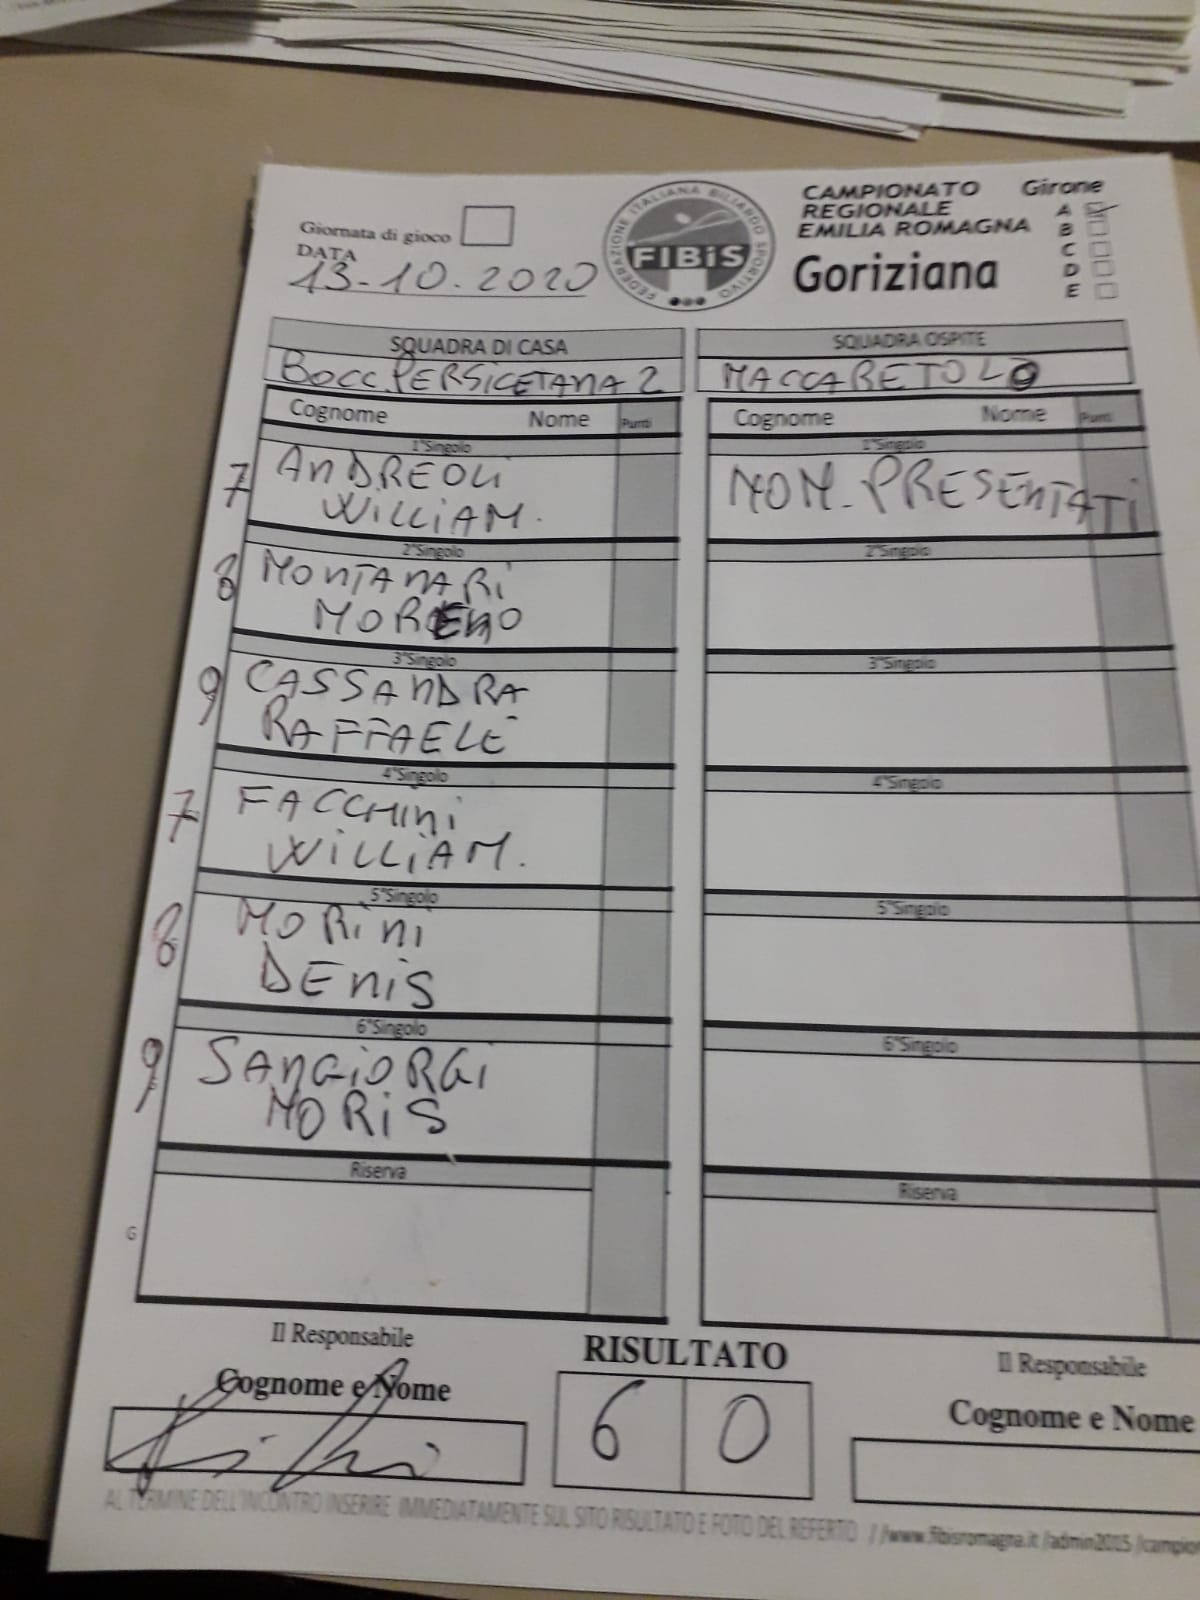 Giornata di gioco
DATA
13-10.2020
FEDERAZIONE ITALIANA BILIARDO SPORTIVO
FIBiS
CAMPIONATO
REGIONALE
EMILIA ROMAGNA
Goriziana
Girone
A
B
C
D
E
SQUADRA DI CASA
BOCC PERSICETANA 2
Cognome Nome Punti
1°Singolo
7 ANDREOLI
WILLIAM.
2°Singolo
8 MONTANARI
MORENO
3°Singolo
9 CASSANDRA
RAFFAELE
4°Singolo
7 FACCHINI
WILLIAM.
5°Singolo
8 MORINI
DENIS
6°Singolo
9 SANGIORGI
MORIS
Riserva
G
SQUADRA OSPITE
MACCARETOLO
Cognome Nome Punti
1°Singolo
NON-PRESENTATI
2°Singolo
3°Singolo
4°Singolo
5°Singolo
6°Singolo
Riserva
Il Responsabile
Cognome e Nome
RISULTATO
6 0
Il Responsabile
Cognome e Nome
AL TERMINE DELL'INCONTRO INSERIRE IMMEDIATAMENTE SUL SITO RISULTATO E FOTO DEL REFERTO //www.fibisromagna.it /admin2015 /campion